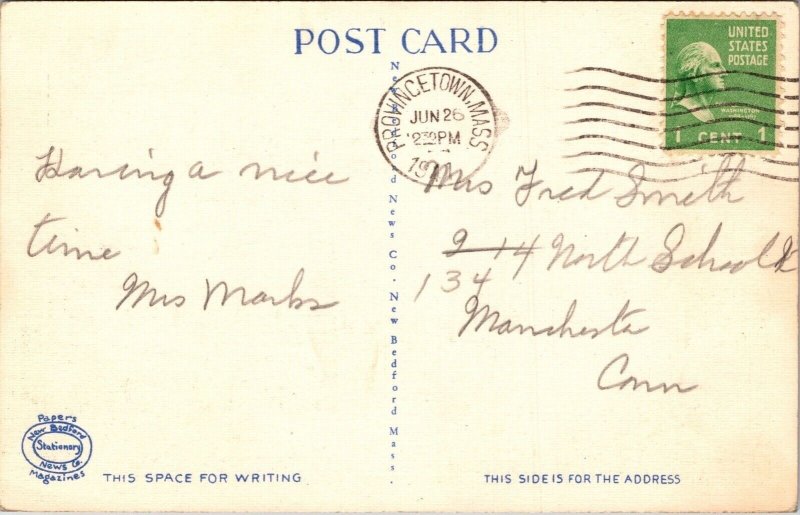 POST CARD
UNITED
STATES
POSTAGE
WASHINGTON
1 CENT 1
PROVINCETOWN, MASS
JUN 26
230PM
19
Having a nice
time
Mrs Marks
Mrs Fred Smith
9 14 North School
134
Manchester
Conn
New Bedford News Co. New Bedford Mass.
Papers
New Bedford
Stationery
News Co.
Magazines
THIS SPACE FOR WRITING
THIS SIDE IS FOR THE ADDRESS